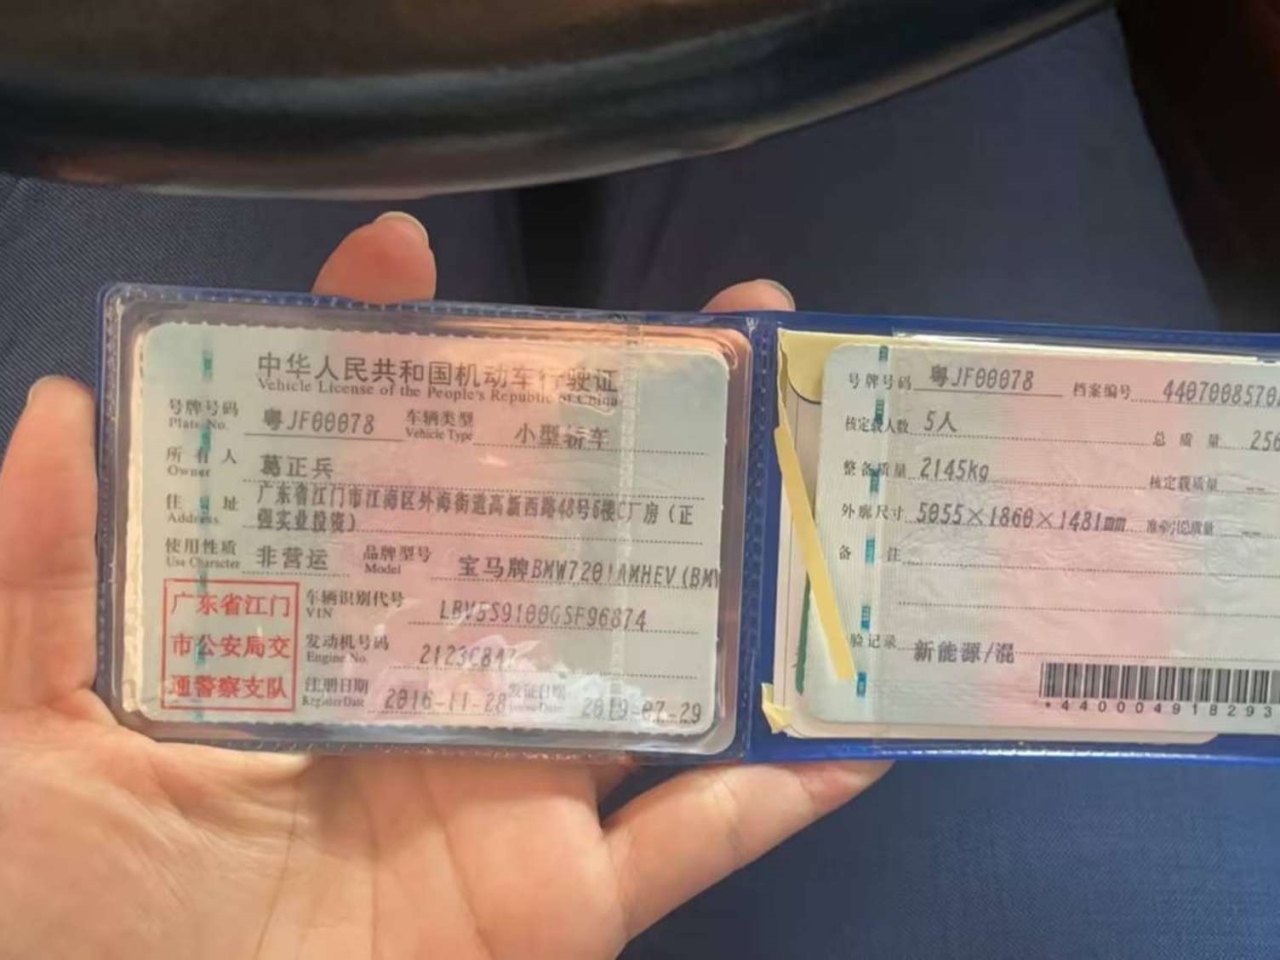 中华人民共和国机动车行驶证
Vehicle License of the People's Republic of China
号牌号码 粤JF00078 车辆类型 小型轿车
Plate No. Vehicle Type
所有人 葛正兵
Owner
住址 广东省江门市江海区外海街道高新西路48号6楼C厂房（正
Address 强实业投资）
使用性质 非营运 品牌型号 宝马牌BMW7201AMHEV(BMW
Use Character Model
广东省江门
市公安局交
通警察支队
车辆识别代号
VIN LBV5S9100GSF96874
发动机号码 2123C847
Engine No.
注册日期 2016-11-28 发证日期 2019-07-29
Register Date Issue Date
号牌号码 粤JF00078 档案编号 4407008570
核定载人数 5人 总质量 256
整备质量 2145kg 核定载质量 --
外廓尺寸 5055×1860×1481mm 准牵引总质量 --
备注
验记录 新能源/混
*440004918293